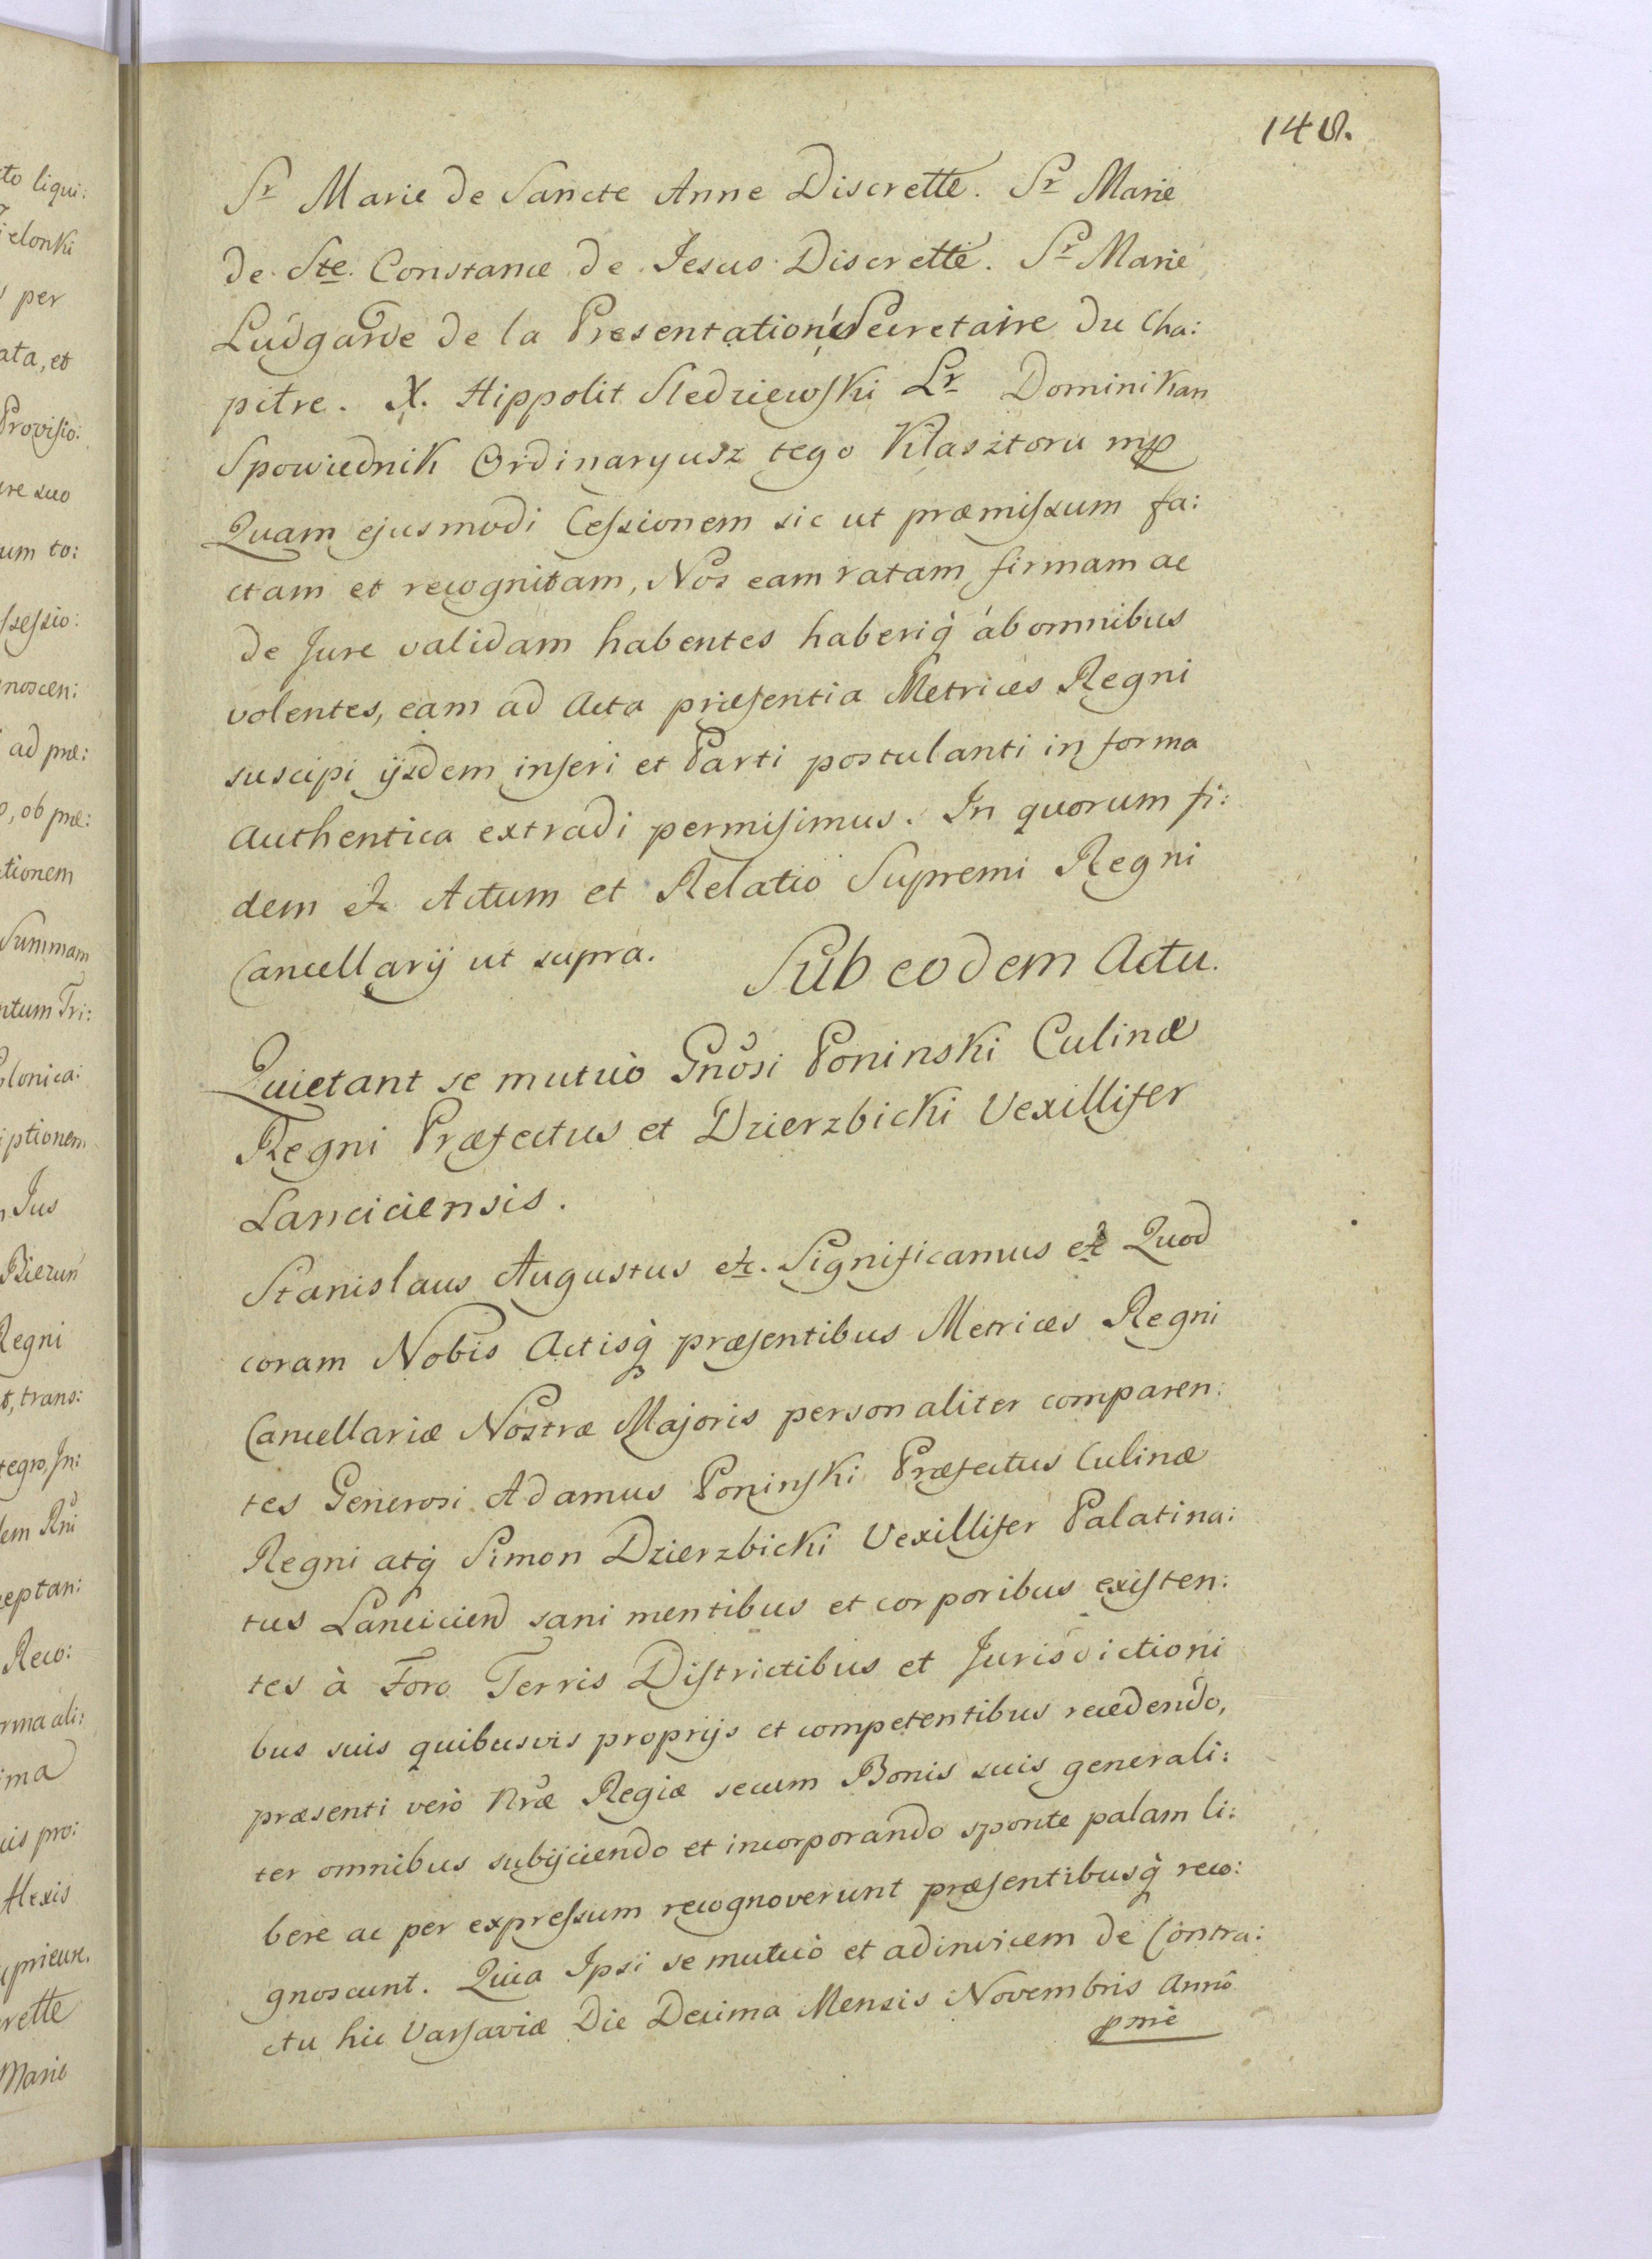 148.
Sr Marie de Sancte Anne Discrette. Sr Marie
de Ste. Constance de Jesus Discrette. Sr Marie
Ludgarde de la Presentation Secretaire du Cha:
pitre. X. Hippolit Sledziewski Lr Dominikan
Spowiednik Ordinaryusz tego Klasztoru mp
Quam ejusmodi Cessionem sic ut præmissum fa:
ctam et recognitam, Nos eam ratam firmam ac
de Jure validam habentes haberiq́ ab omnibus
volentes, eam ad Acta præsentia Metrices Regni
suscipi ijsdem inseri et Parti postulanti in forma
authentica extradi permisimus. In quorum fi:
dem etc Actum et Relatio Supremi Regni
Cancellarij ut supra.
Sub eodem Actu.
Quietant se mutuò Gnosi Poninski Culinæ
Regni Præfectus et Dzierzbicki Vexillifer
Lanciciensis.
Stanislaus Augustus etc. Significamus etc Quod
coram Nobis Actisq́ præsentibus Metrices Regni
Cancellariæ Nostræ Majoris personaliter comparen:
tes Generosi Adamus Poninski Præfectus Culinæ
Regni atq́ Simon Dzierzbicki Vexillifer Palatina:
tus Lancicien sani mentibus et corporibus existen:
tes à Foro Terris Districtibus et Jurisdictioni
bus suis quibusvis proprijs et competentibus recedendo,
præsenti verò Nræ Regiæ secum Bonis suis generali:
ter omnibus subijciendo et incorporando sponte palam li:
bere ac per expressum recognoverunt præsentibusq́ reco:
gnoscunt. Quia Ipsi se mutuò et adinvicem de Contra:
ctu hic Varsaviæ Die Decima Mensis Novembris Anno